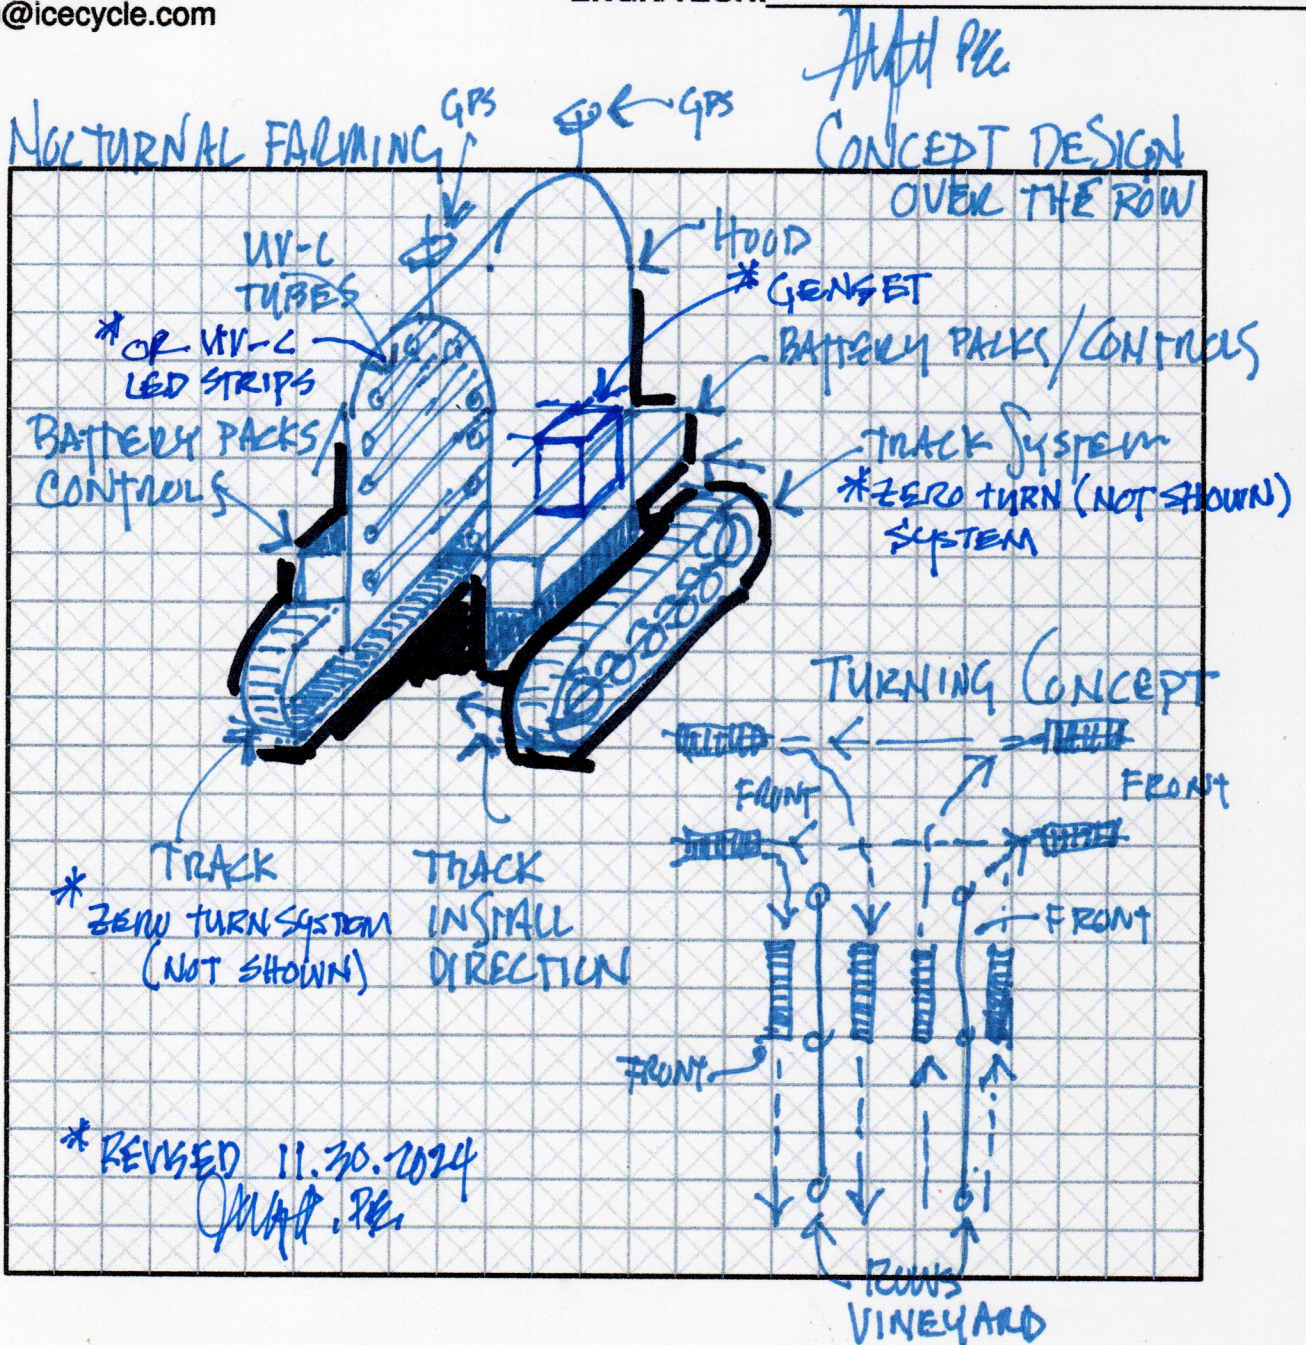 @icecycle.com
P.E.
NOCTURNAL FARMING
GPS
GPS
CONCEPT DESIGN
OVER THE ROW
UV-C
TUBES
* OR UV-C
LED STRIPS
BATTERY PACKS/
CONTROLS
HOOD
* GENSET
BATTERY PACKS/CONTROLS
TRACK SYSTEM
* ZERO TURN (NOT SHOWN)
SYSTEM
TURNING CONCEPT
FRONT
FRONT
FRONT
FRONT
TRACK
* ZERO TURN SYSTEM
(NOT SHOWN)
TRACK
INSTALL
DIRECTION
* REVISED 11.30.2024
P.E.
ROWS
VINEYARD